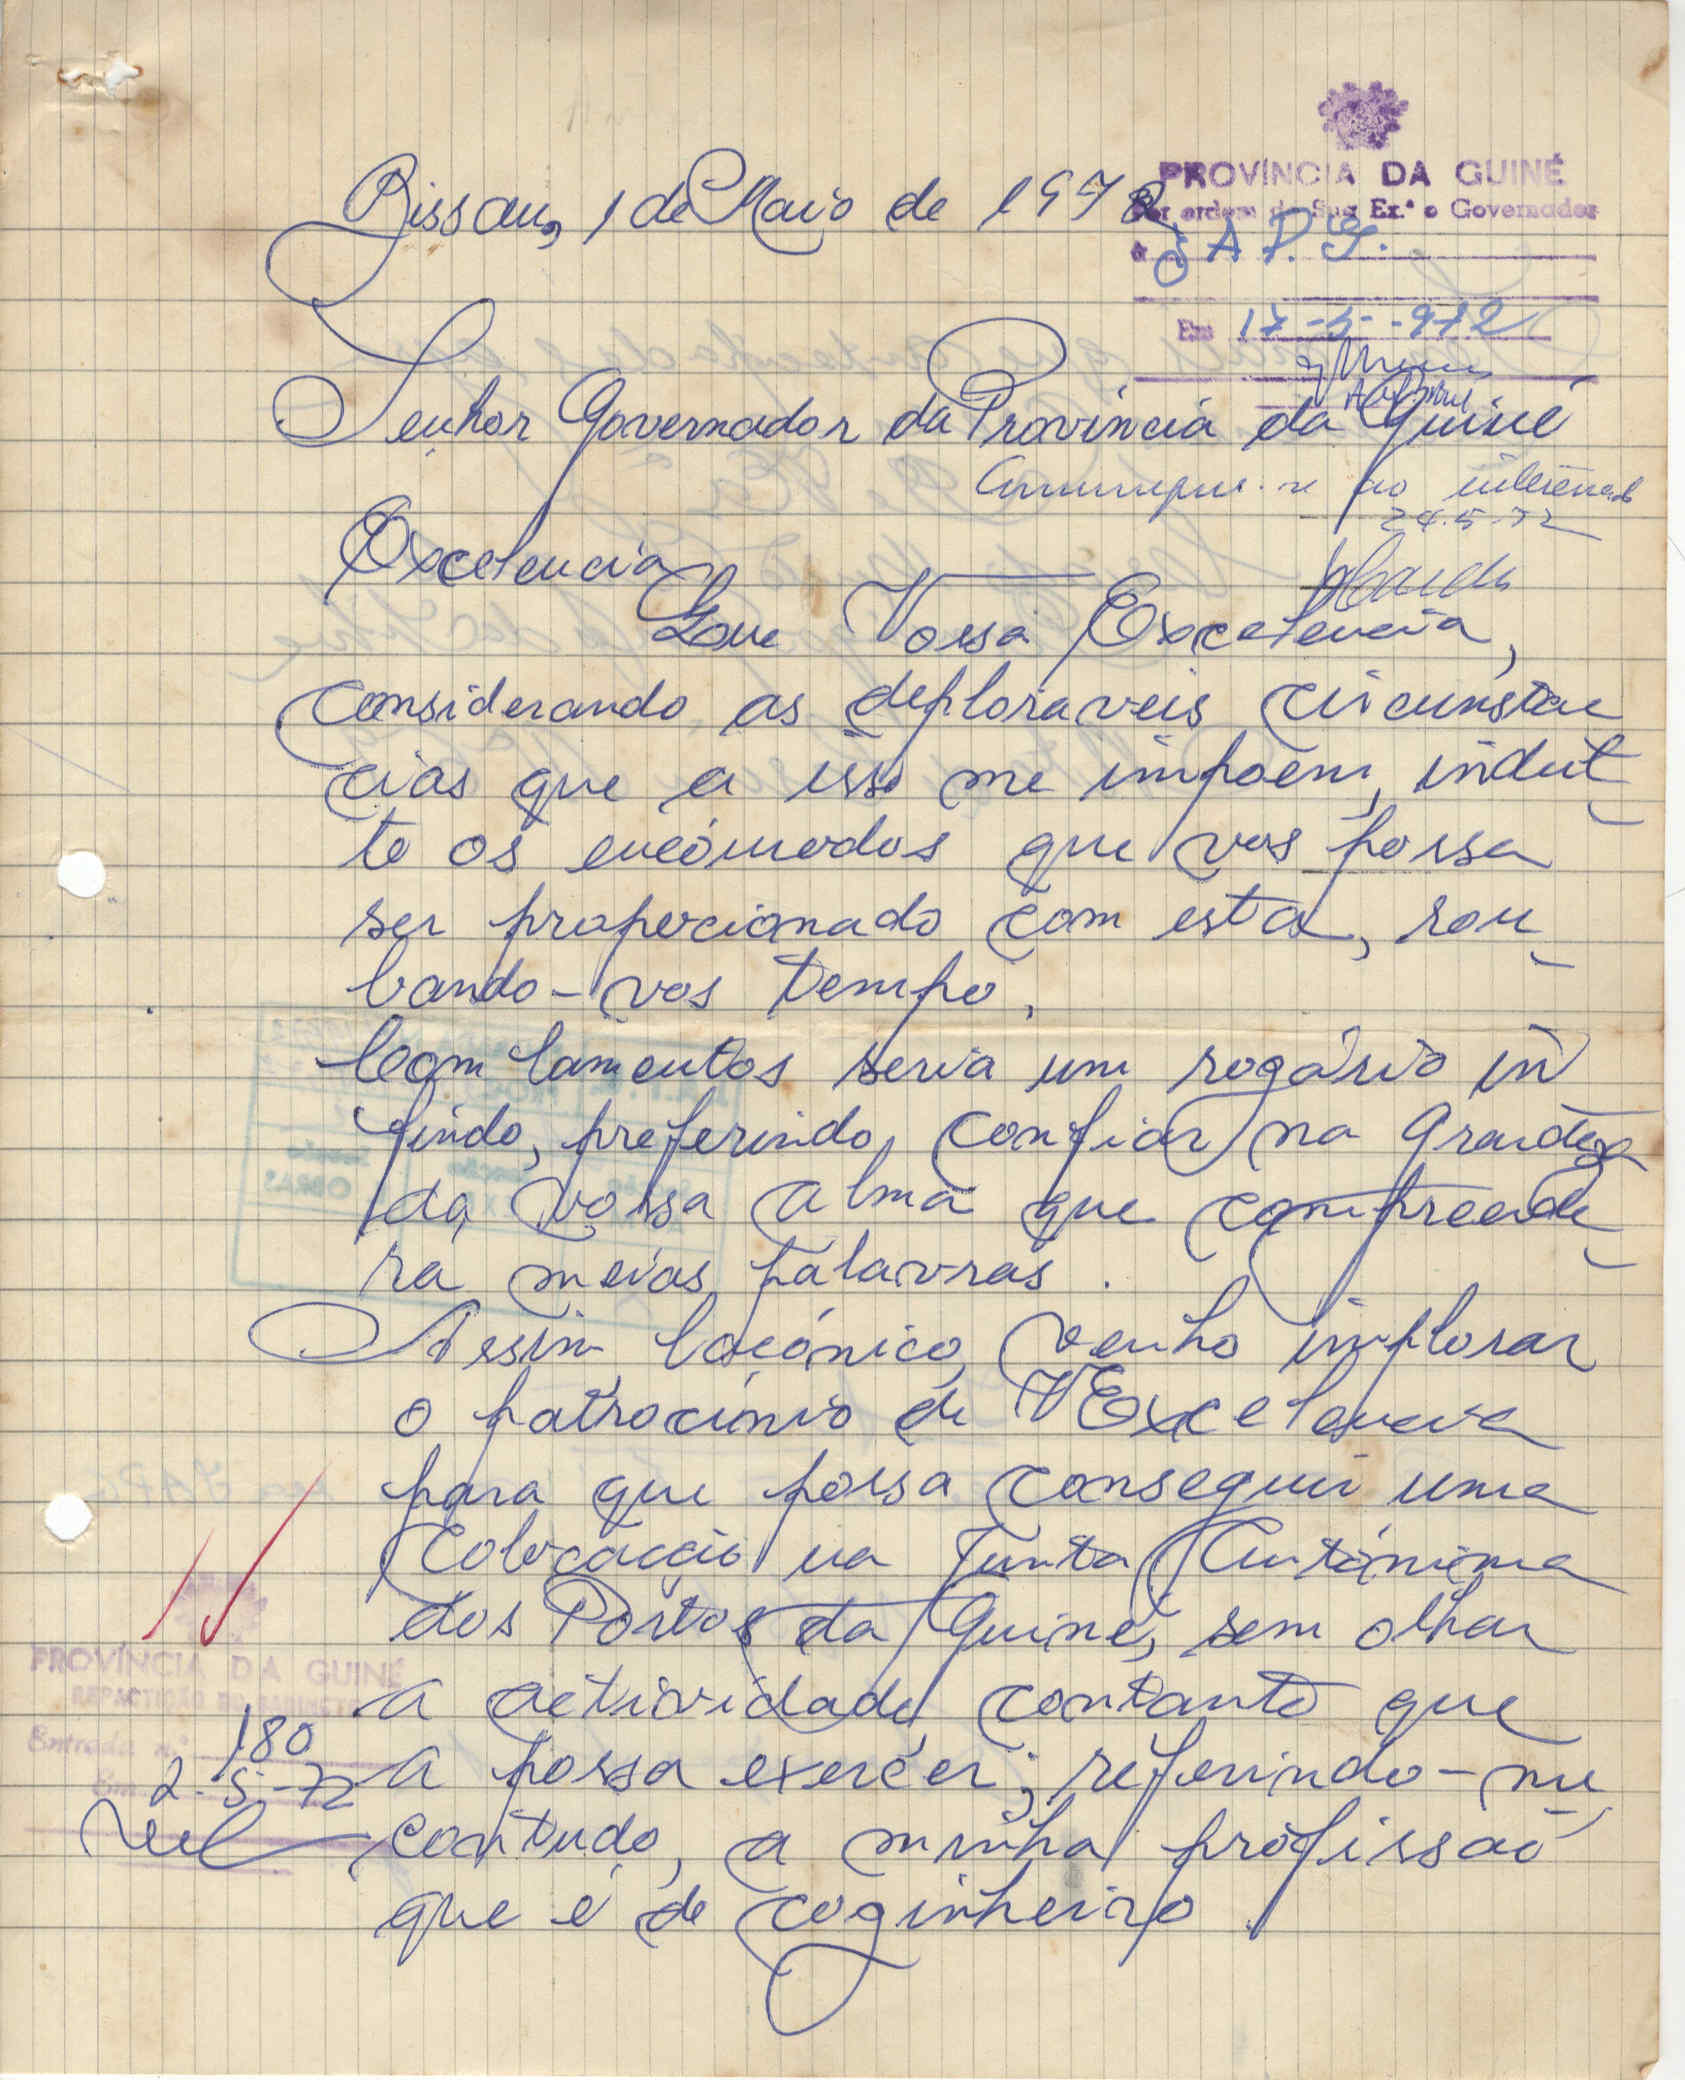 Bissau, 1 de Maio de 1972
PROVÍNCIA DA GUINÉ
Por ordem de Sua Ex.ª o Governador
à J A P. G.
Em 17-5-972
Senhor Governador da Provincia da Guiné
Comunique-se ao interessado
24.5.72
Excelencia
Que Vossa Excelencia,
considerando as deploraveis circunstan
cias que a isso me impoem, indul
te os encómodos que vos possa
ser proporcionado com esta, rou
bando-vos tempo.
Com lamentos seria um rogário in
findo, preferindo, confiar na Grandeza
da vossa alma que compreende
ra meias palavras.
Assim lacónico, venho implorar
o patrocinio de VExcelencia
para que possa conseguir uma
Colocacção na Junta Autónima
dos Portos da Guiné, sem olhar
a actividade, contanto que
a possa exercer; referindo-me
contudo, a minha profissão
que é de coginheiro.
PROVÍNCIA DA GUINÉ
REPARTIÇÃO DO GABINETE
Entrada n.º 180
Em 2-5-72